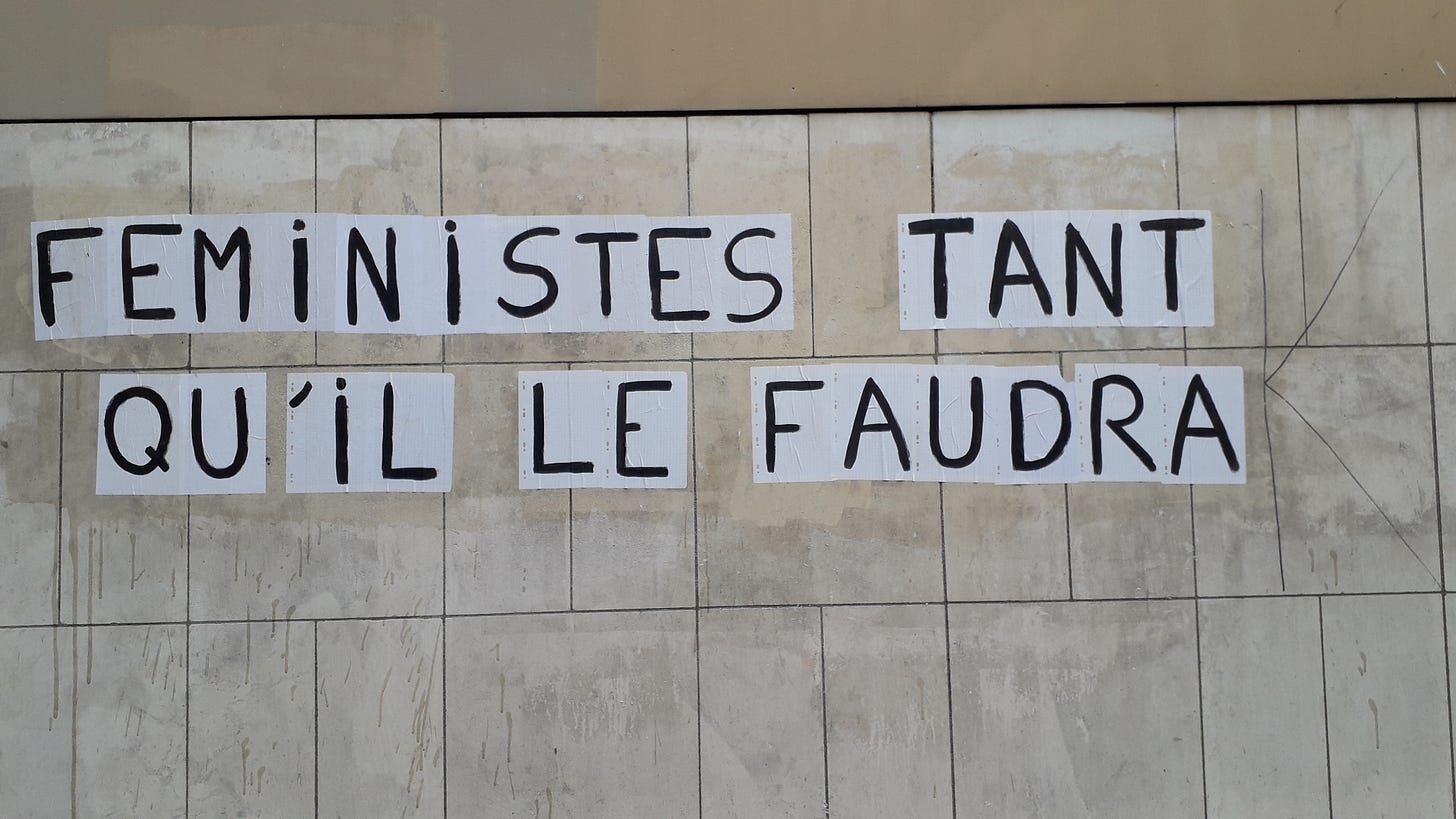 FEMiNiSTES TANT
QU'iL LE FAUDRA